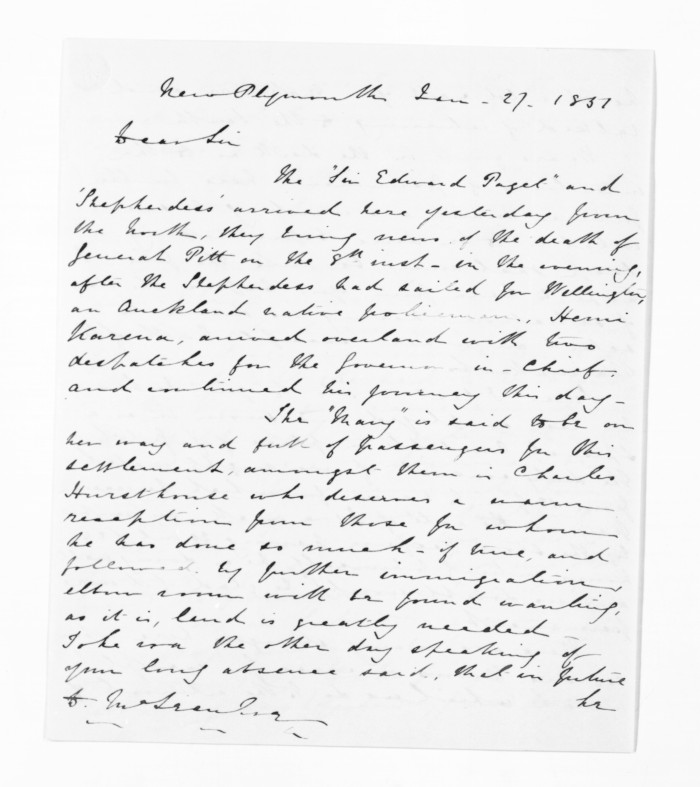 New Plymouth Jan - 27 - 1851
Dear Sir
The "Sir Edward Paget" and
'Shepherdess' arrived here yesterday from
the North, they bring news of the death of
General Pitt on the 8th inst - in the evening,
after the Shepherdess had sailed for Wellington,
an Auckland native policeman, Hemi
Karena, arrived overland with two
despatches for the Governor - in - Chief,
and continued his journey this day -
The "Mary" is said to be on
her way and full of passengers for this
settlement, amongst them is Charles
Hursthouse who deserves a warm
reception from those for whom
he has done so much - if true, and
followed by further immigration,
elbow room will be found wanting,
as it is, land is greatly needed -
the other day speaking of
your long absence said, that in future
he
D. McLean Esq